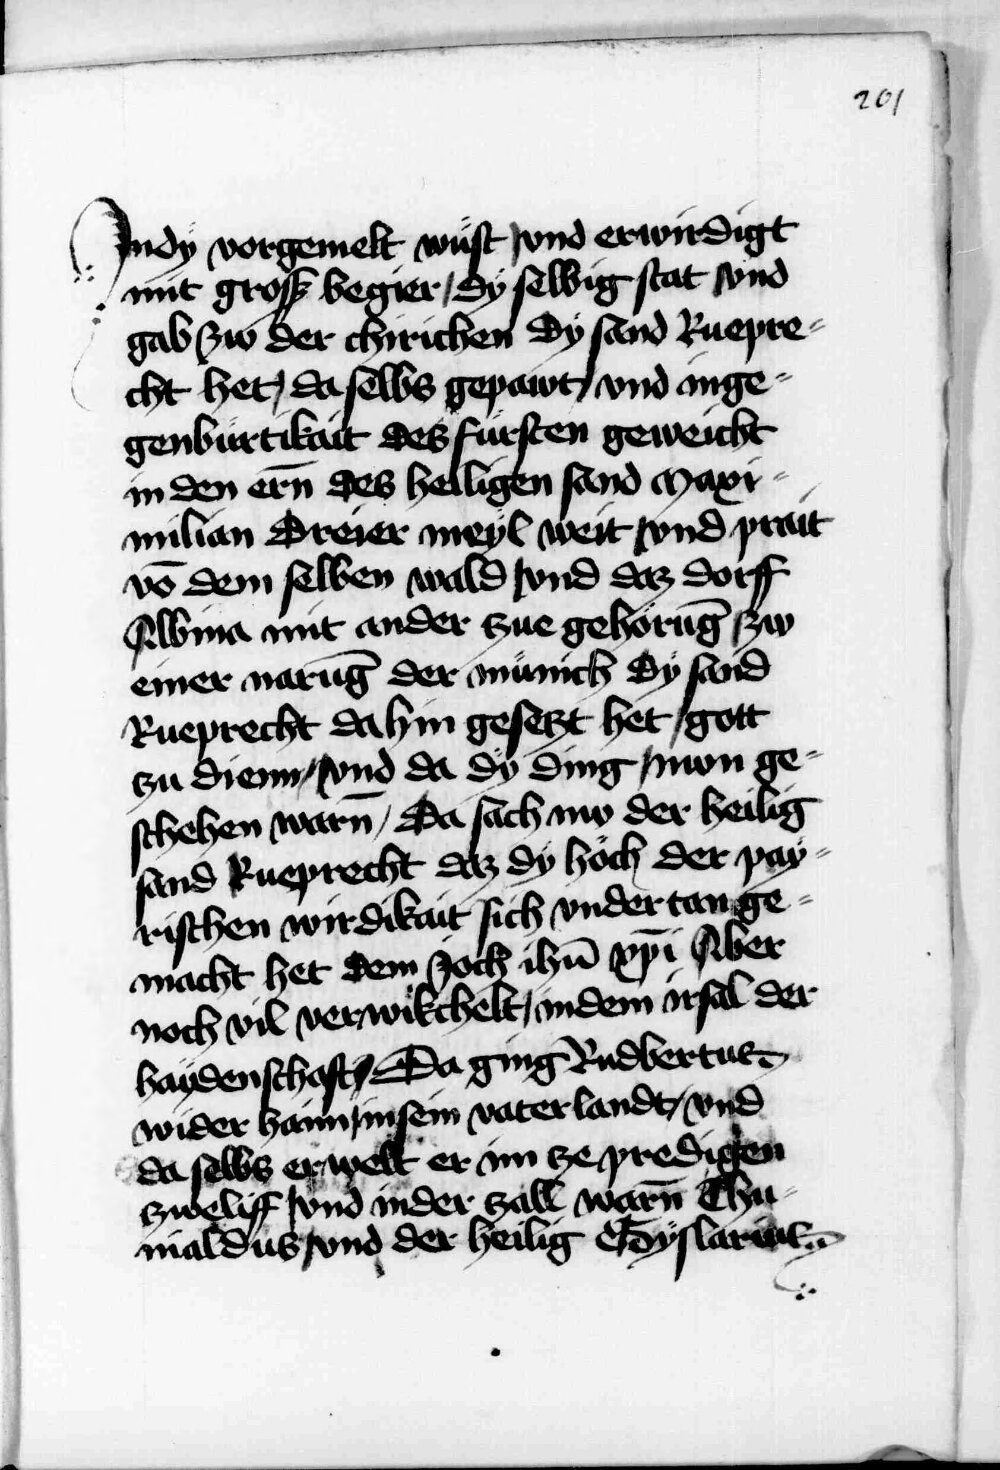 201
Jndÿ vorgemelt wüst / vnd erwirdigt
mit gross begier / dÿ selbig stat / vnd
gab zw der chirichen dÿ sand Ruepre-
cht het / da selbs gepawt / vnd inge-
genbürtikait des fürsten geweicht
in den ern̄ des heiligen sand Maxi-
milian dreier meÿl weit / vnd prait
vō dem selben wald / vnd daz dorff
Albina mit ander zue gehörūg / zw
einer narūg der münich dÿ sand
Rueprecht da hin gesetzt het / gott
zu dienn / vnd da dÿ ding / nwn ge-
schehen warn̄ / Da sach nw der heilig
sand Rueprecht daz dÿ höch der paÿ-
rischen wirdikait sich vndertan ge-
macht het dem Joch ihū xp̄i Aber
noch vil verwikchelt / indem irsal der
haÿdenschaft / Da ging Rudbertus
wider haim / in sein vaterlandt / vnd
da selbs erwelt er im ze predigen
zweliff / vnd inder zall warn̄ Chu-
nialdus / vnd der heilig Gÿslarius